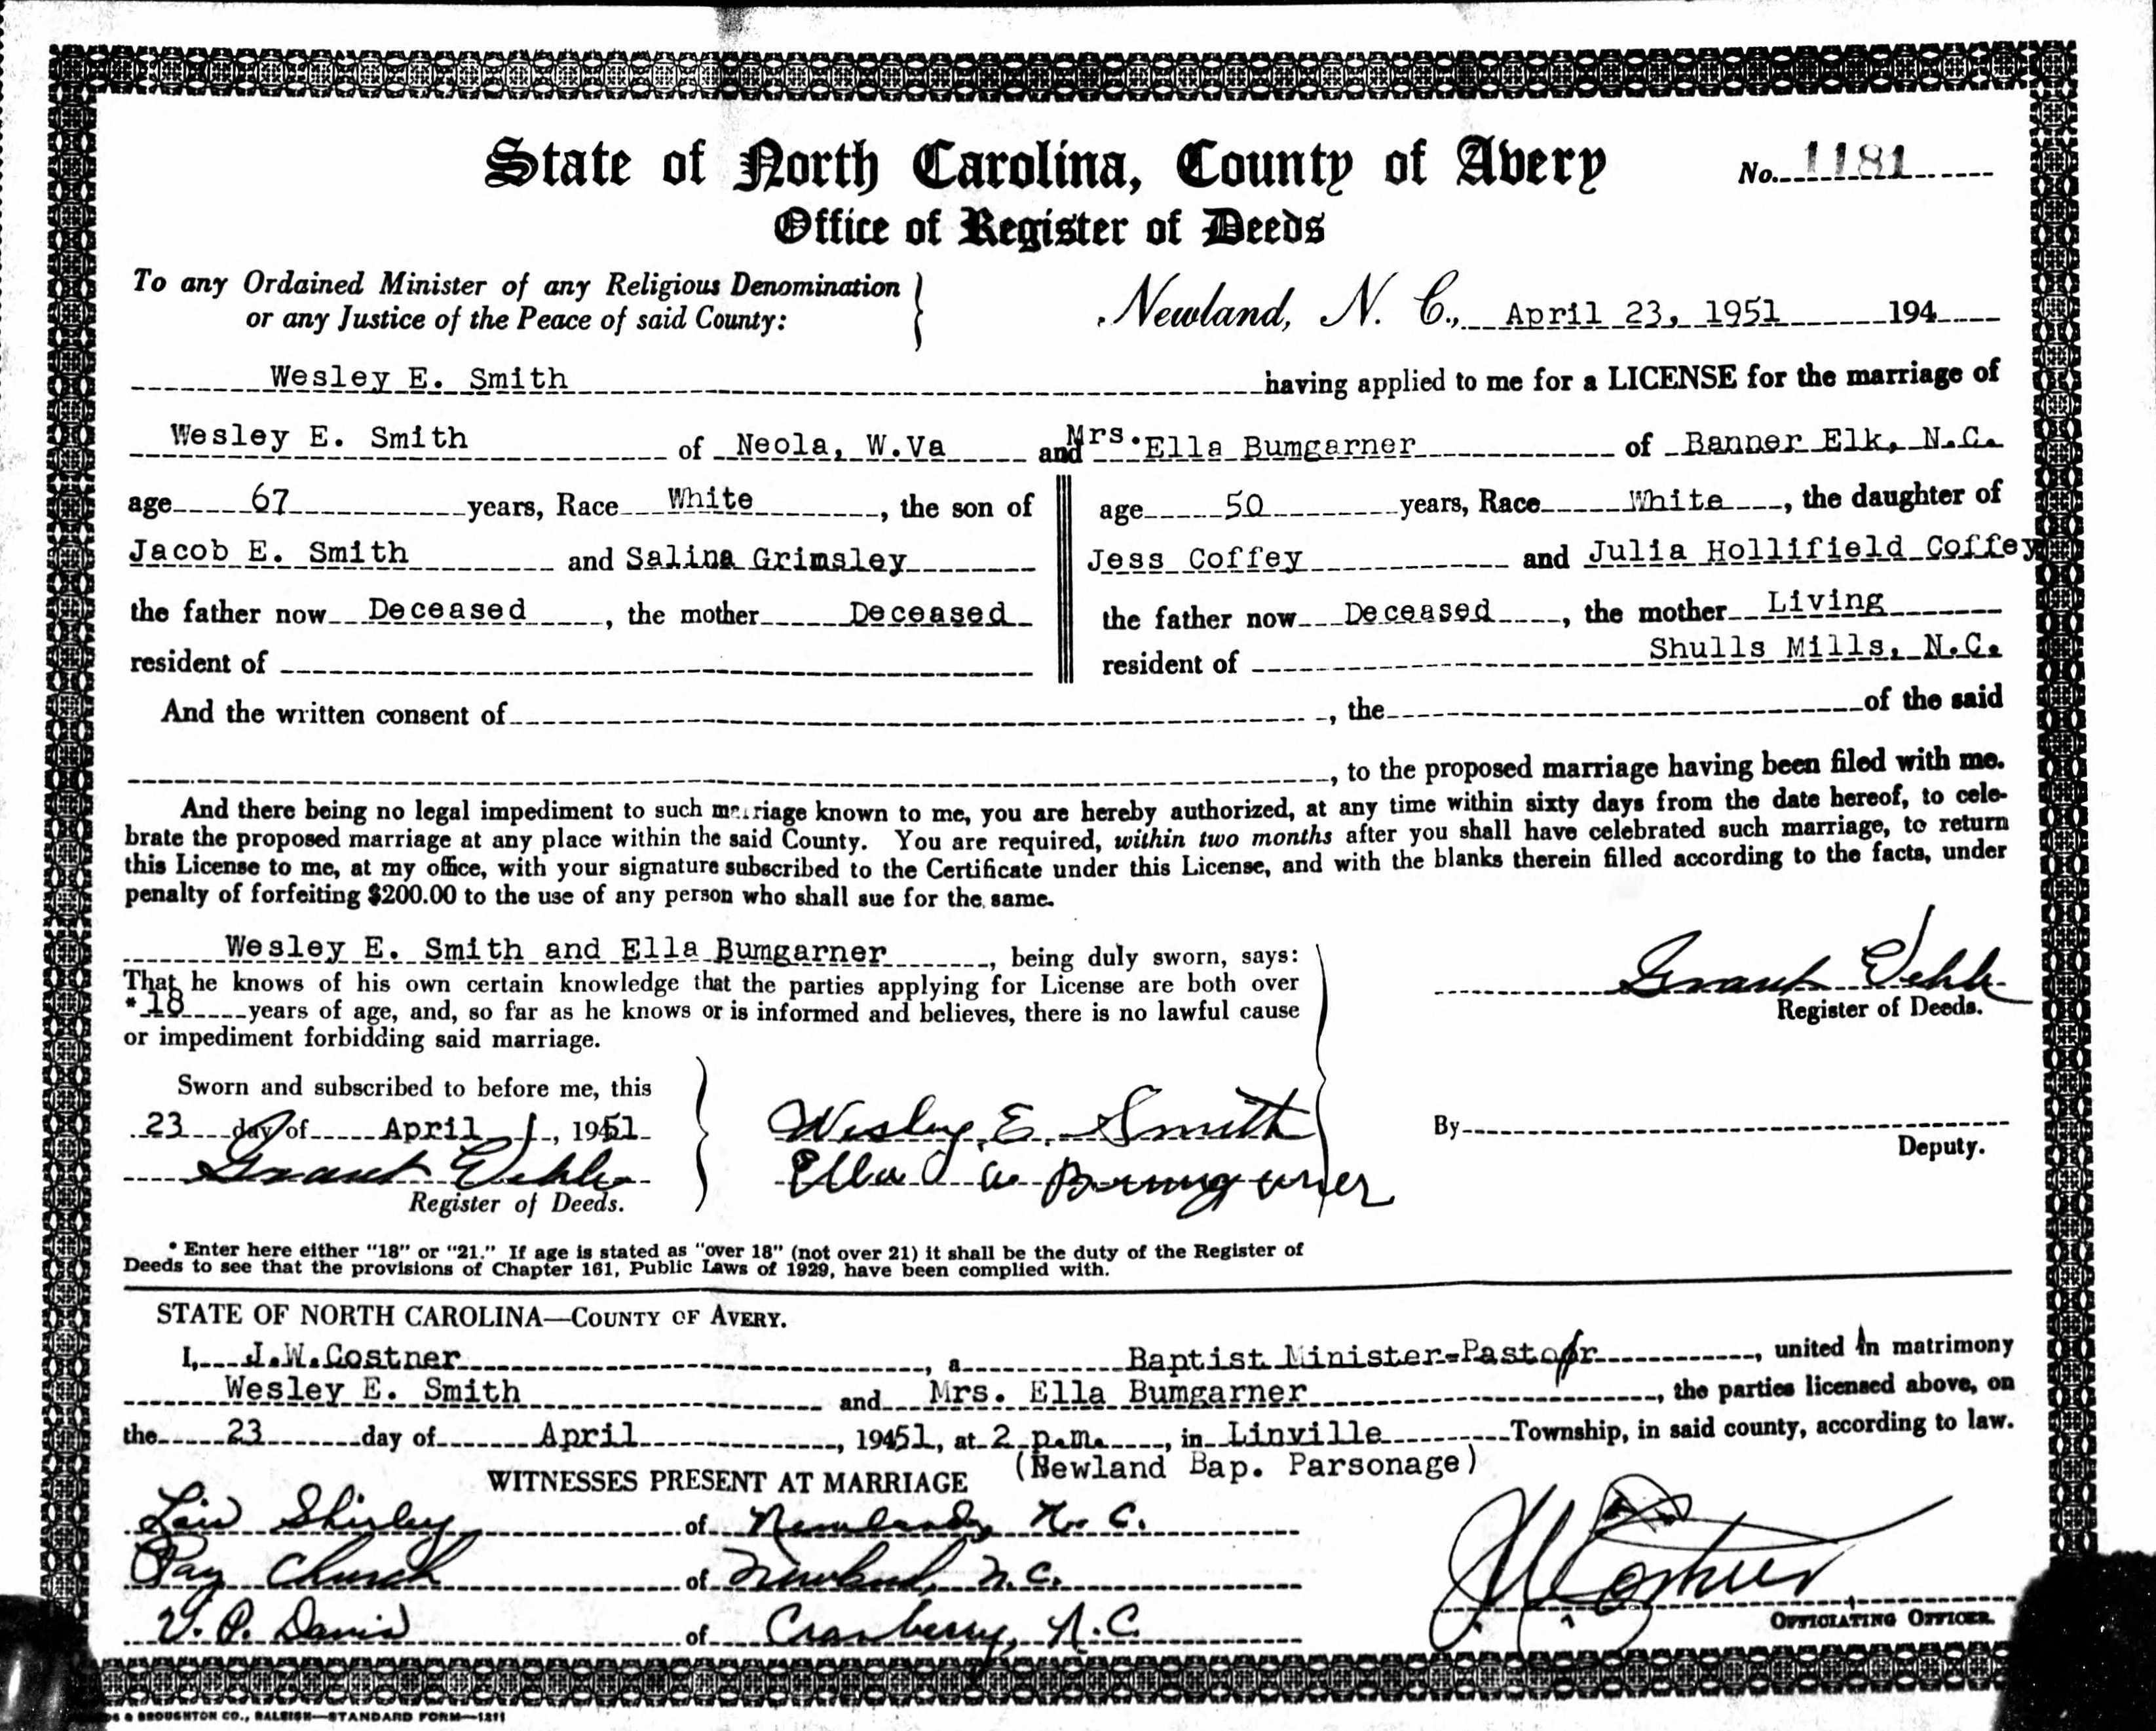 State of North Carolina, County of Avery No. 1181
Office of Register of Deeds
To any Ordained Minister of any Religious Denomination
or any Justice of the Peace of said County:
Newland, N. C., April 23, 1951 194
Wesley E. Smith having applied to me for a LICENSE for the marriage of
Wesley E. Smith of Neola, W.Va and Mrs. Ella Bumgarner of Banner Elk, N.C.
age 67 years, Race White, the son of
Jacob E. Smith and Salina Grimsley
the father now Deceased, the mother Deceased
resident of
age 50 years, Race White, the daughter of
Jess Coffey and Julia Hollifield Coffey
the father now Deceased, the mother Living
resident of Shulls Mills, N.C.
And the written consent of , the of the said
, to the proposed marriage having been filed with me.
And there being no legal impediment to such marriage known to me, you are hereby authorized, at any time within sixty days from the date hereof, to cele-
brate the proposed marriage at any place within the said County. You are required, within two months after you shall have celebrated such marriage, to return
this License to me, at my office, with your signature subscribed to the Certificate under this License, and with the blanks therein filled according to the facts, under
penalty of forfeiting $200.00 to the use of any person who shall sue for the same.
Wesley E. Smith and Ella Bumgarner, being duly sworn, says:
That he knows of his own certain knowledge that the parties applying for License are both over
*18 years of age, and, so far as he knows or is informed and believes, there is no lawful cause
or impediment forbidding said marriage.
Grant
Register of Deeds.
Sworn and subscribed to before me, this
23 day of April, 1951
Grant
Register of Deeds.
Wesley E. Smith
Ella Bumgarner
By
Deputy.
* Enter here either "18" or "21." If age is stated as "over 18" (not over 21) it shall be the duty of the Register of
Deeds to see that the provisions of Chapter 161, Public Laws of 1929, have been complied with.
STATE OF NORTH CAROLINA—COUNTY OF AVERY.
I, J.W. Costner, a Baptist Minister-Pastor, united in matrimony
Wesley E. Smith and Mrs. Ella Bumgarner, the parties licensed above, on
the 23 day of April, 19451, at 2 p.m., in Linville Township, in said county, according to law.
(Newland Bap. Parsonage)
WITNESSES PRESENT AT MARRIAGE
Shirley of Newland, N. C.
Ray Church of Newland, N.C.
V. P. Davis of Cranberry, N.C.
J W Costner
OFFICIATING OFFICER.
& BROUGHTON CO., RALEIGH—STANDARD FORM—1211